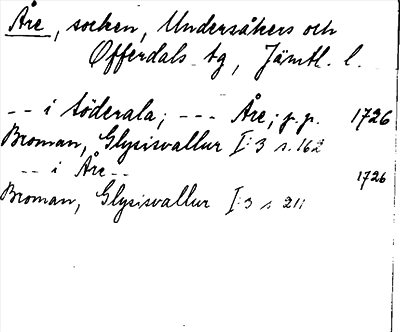 Åre, socken, Undersåkers och
Offerdals tg, Jämtl. l.
-- i Söderala; --- Åre; p.p. 1726
Broman, Glysisvallur I:3 s. 162
-- i Åre-- 1726
Broman, Glysisvallur I:3 s 211